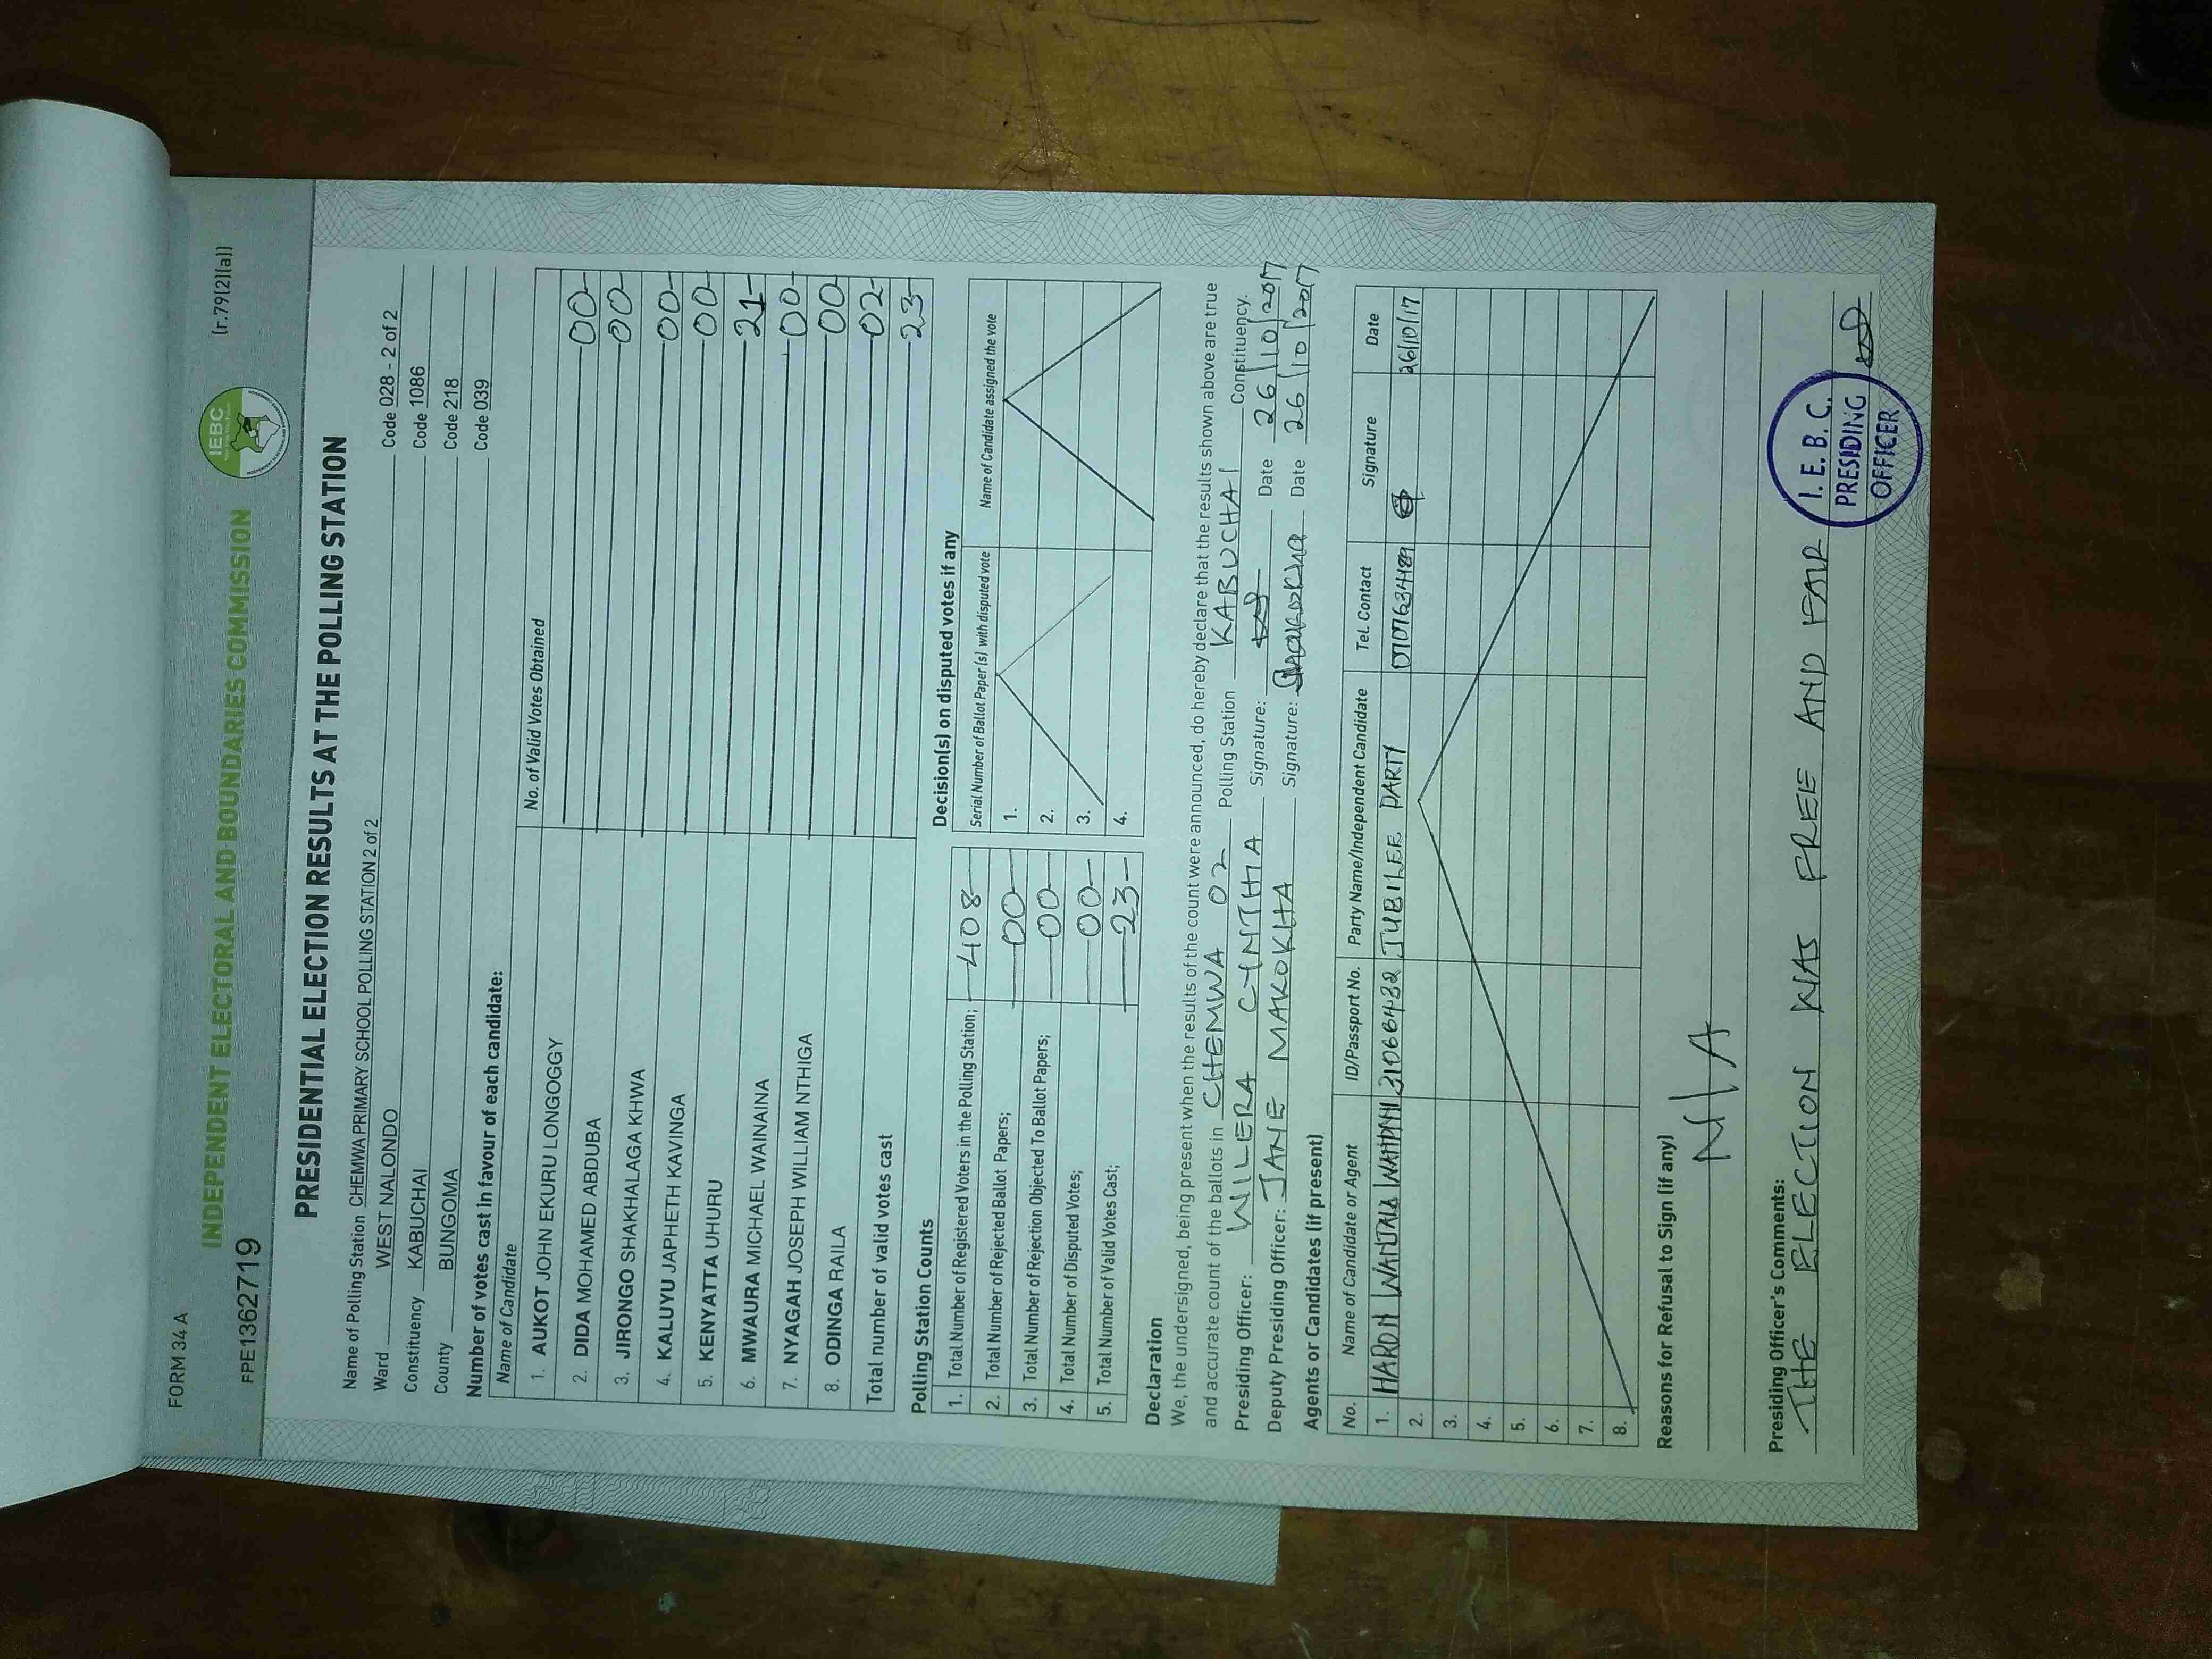 FORM 34 A
(r.79(2)(a))
INDEPENDENT ELECTORAL AND BOUNDARIES COMMISSION
IEBC
FPE1362719
PRESIDENTIAL ELECTION RESULTS AT THE POLLING STATION
Name of Polling Station CHEMWA PRIMARY SCHOOL POLLING STATION 2 of 2 Code 028 - 2 of 2
Ward WEST NALONDO Code 1086
Constituency KABUCHAI Code 218
County BUNGOMA Code 039
Number of votes cast in favour of each candidate:
Name of Candidate No. of Valid Votes Obtained
1. AUKOT JOHN EKURU LONGOGGY 00
2. DIDA MOHAMED ABDUBA 00
3. JIRONGO SHAKHALAGA KHWA 00
4. KALUYU JAPHETH KAVINGA 00
5. KENYATTA UHURU 21
6. MWAURA MICHAEL WAINAINA 00
7. NYAGAH JOSEPH WILLIAM NTHIGA 00
8. ODINGA RAILA 02
Total number of valid votes cast 23
Polling Station Counts
1. Total Number of Registered Voters in the Polling Station; 408
2. Total Number of Rejected Ballot Papers; 00
3. Total Number of Rejection Objected To Ballot Papers; 00
4. Total Number of Disputed Votes; 00
5. Total Number of Valid Votes Cast; 23
Decision(s) on disputed votes if any
Serial Number of Ballot Paper(s) with disputed vote Name of Candidate assigned the vote
1.
2.
3.
4.
Declaration
We, the undersigned, being present when the results of the count were announced, do hereby declare that the results shown above are true
and accurate count of the ballots in CHEMWA 02 Polling Station KABUCHAI Constituency.
Presiding Officer: WILERA CYNTHIA Signature: Date 26/10/2017
Deputy Presiding Officer: JANE MAKOKHA Signature: Date 26/10/2017
Agents or Candidates (if present)
No. Name of Candidate or Agent ID/Passport No. Party Name/Independent Candidate Tel. Contact Signature Date
1. WANJALA 31066432 JUBILEE PARTY 26/10/17
2.
3.
4.
5.
6.
7.
8.
Reasons for Refusal to Sign (if any)
N/A
Presiding Officer's Comments:
THE ELECTION WAS FREE AND FAIR
I.E.B.C.
PRESIDING
OFFICER